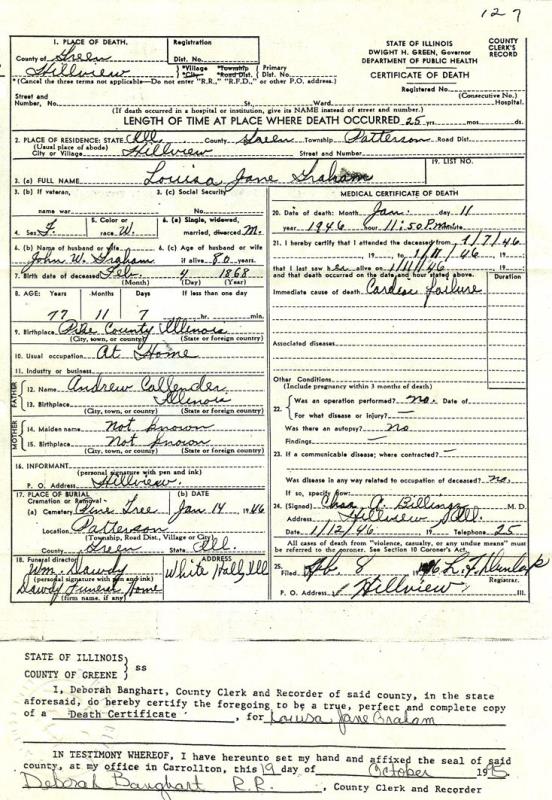 12 7
1. PLACE OF DEATH. Registration
County of Green Dist. No.
Hillview *Village *Township Primary
*City *Road Dist. Dist. No.
*(Cancel the three terms not applicable—Do not enter "R.R.," "R.F.D.," or other P.O. address.)
Street and
Number, No. St., Ward, Hospital.
STATE OF ILLINOIS
DWIGHT H. GREEN, Governor
DEPARTMENT OF PUBLIC HEALTH
CERTIFICATE OF DEATH
COUNTY
CLERK'S
RECORD
Registered No. (Consecutive No.)
(If death occurred in a hospital or institution, give its NAME instead of street and number.)
LENGTH OF TIME AT PLACE WHERE DEATH OCCURRED 25 yrs. mos. ds.
2. PLACE OF RESIDENCE: STATE Ill County Green Township Patterson Road Dist.
(Usual place of abode)
City or Village Hillview Street and Number
19. LIST NO.
3. (a) FULL NAME Louisa Jane Graham
3. (b) If veteran, 3. (c) Social Security
name war No.
4. Sex F. 5. Color or race W. 6. (a) Single, widowed, married, divorced M.
6. (b) Name of husband or wife 6. (c) Age of husband or wife
John W. Graham if alive 80 years.
7. Birth date of deceased Feb. 4 1868
(Month) (Day) (Year)
8. AGE: Years Months Days If less than one day
77 11 7 hr. min.
9. Birthplace Pike County Illinois
(City, town, or county) (State or foreign country)
10. Usual occupation At Home
11. Industry or business
FATHER
12. Name Andrew Callender
13. Birthplace Illinois
(City, town, or county) (State or foreign country)
MOTHER
14. Maiden name Not Known
15. Birthplace Not Known
(City, town, or county) (State or foreign country)
16. INFORMANT
(personal signature with pen and ink)
P. O. Address Hillview.
17. PLACE OF BURIAL (b) DATE
Cremation or Removal
(a) Cemetery Pine Tree Jan 14 1946
Location Patterson
(Township, Road Dist., Village or City)
County Green State Ill
18. Funeral director ADDRESS
Wm. Dawdy White Hall, Ill
(personal signature with pen and ink)
Dawdy Funeral Home
(firm name, if any)
MEDICAL CERTIFICATE OF DEATH
20. Date of death: Month Jan. day 11
year 1946 hour 11:50 P.M. minute
21. I hereby certify that I attended the deceased from 1/7/46
19 to 1/11/46 19
that I last saw her alive on 1/11/46 19
and that death occurred on the date and hour stated above. Duration
Immediate cause of death Cardiac failure
Associated diseases
Other Conditions
(Include pregnancy within 3 months of death)
22. Was an operation performed? no. Date of
For what disease or injury? —
Was there an autopsy? no
Findings —
23. If a communicable disease; where contracted? —
Was disease in any way related to occupation of deceased? no.
If so, specify how:
24. (Signed) Chas A Billings M. D.
Address Hillview Ill.
Date 1/12/46 19 Telephone 25
All cases of death from "violence, casualty, or any undue means" must
be referred to the coroner. See Section 10 Coroner's Act.
25. Filed 8 L. F. Dunlap
Registrar.
P. O. Address Hillview Ill.
STATE OF ILLINOIS } ss
COUNTY OF GREENE }
I, Deborah Banghart, County Clerk and Recorder of said county, in the state
aforesaid, do hereby certify the foregoing to be a true, perfect and complete copy
of a Death Certificate, for Louisa Jane Graham
IN TESTIMONY WHEREOF, I have hereunto set my hand and affixed the seal of said
county, at my office in Carrollton, this 19 day of October 1995
Deborah Banghart R.R., County Clerk and Recorder